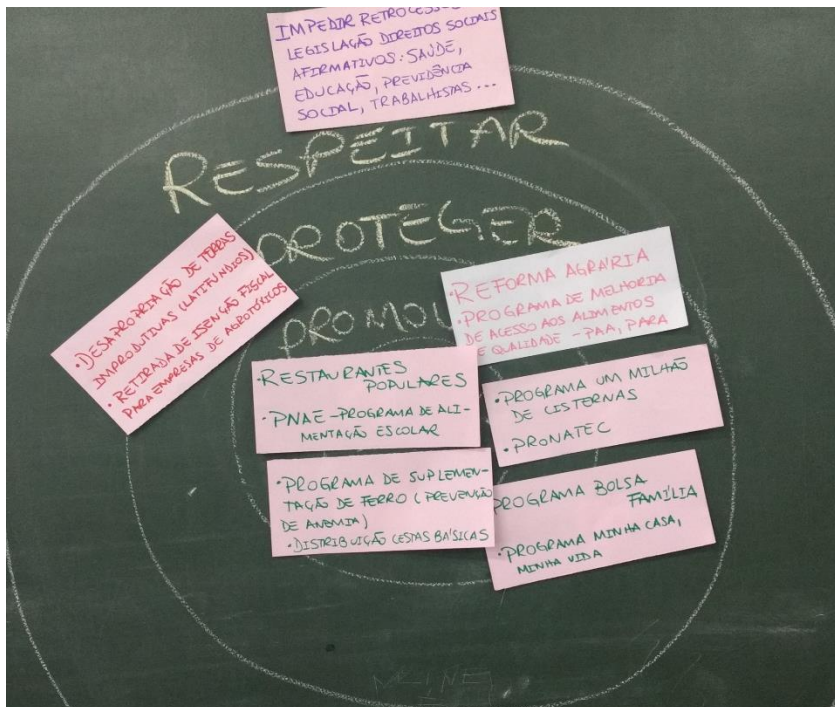 IMPEDIR RETROCESSOS
LEGISLAÇÃO DIREITOS SOCIAIS
AFIRMATIVOS: SAÚDE,
EDUCAÇÃO, PREVIDÊNCIA
SOCIAL, TRABALHISTAS...
RESPEITAR
PROTEGER
• DESAPROPRIAÇÃO DE TERRAS
IMPRODUTIVAS (LATIFÚNDIOS)
• RETIRADA DE ISENÇÃO FISCAL
PARA EMPRESAS DE AGROTÓXICOS
• REFORMA AGRÁRIA
• PROGRAMA DE MELHORIA
DE ACESSO AOS ALIMENTOS
DE QUALIDADE - PAA, PARA
PROMOV
• RESTAURANTES
POPULARES
• PNAE - PROGRAMA DE ALI-
MENTAÇÃO ESCOLAR
• PROGRAMA UM MILHÃO
DE CISTERNAS
• PRONATEC
• PROGRAMA DE SUPLEMEN-
TAÇÃO DE FERRO (PREVENÇÃO
DE ANEMIA)
• DISTRIBUIÇÃO CESTAS BÁSICAS
PROGRAMA BOLSA
FAMÍLIA
• PROGRAMA MINHA CASA,
MINHA VIDA